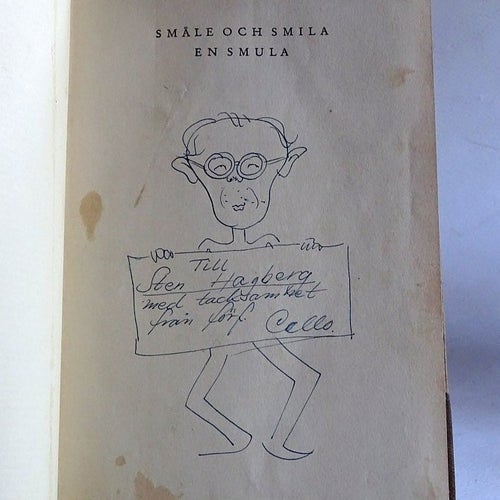 SMÅLE OCH SMILA
EN SMULA
Till
Sten Hagberg
med tacksamhet
från förf. Cello.